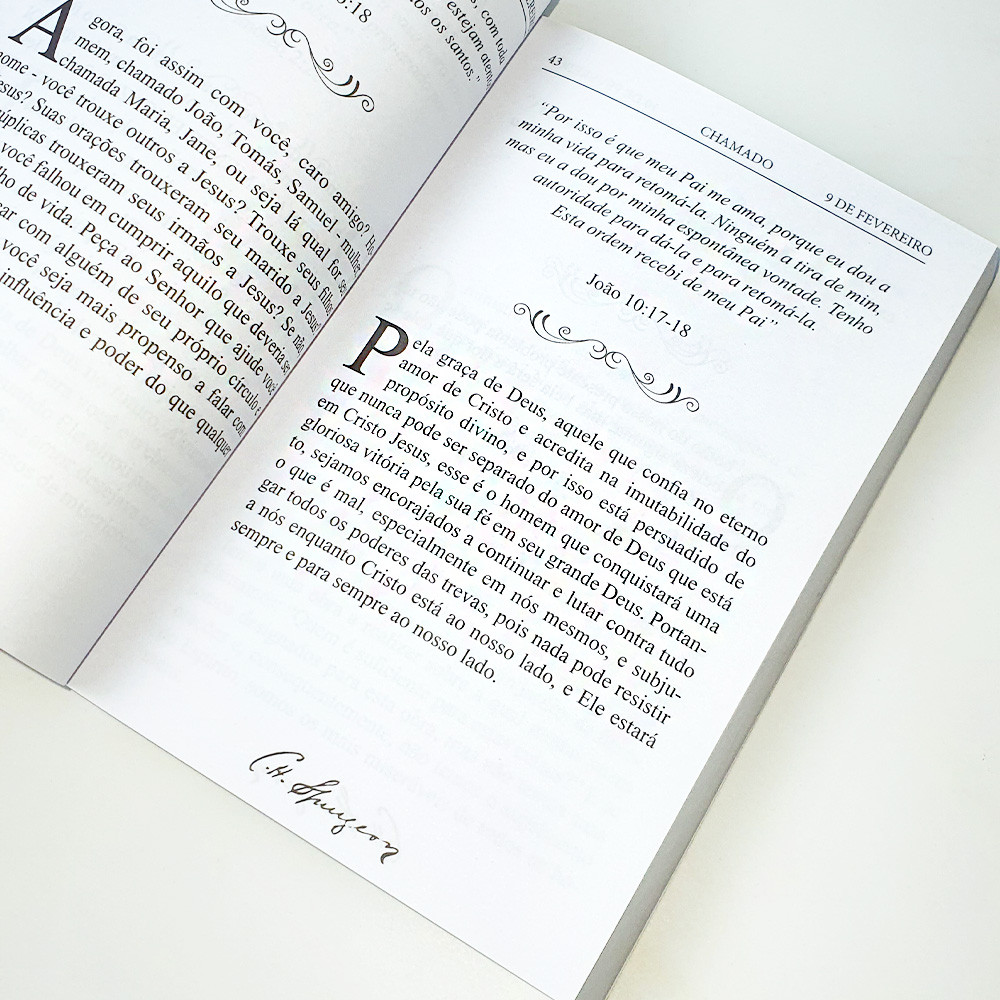 :18
, com toda
estejam atentos
os santos."
A
gora, foi assim com você, caro amigo? Ho
mem, chamado João, Tomás, Samuel - mulher
chamada Maria, Jane, ou seja lá qual for seu
nome - você trouxe outros a Jesus? Trouxe seus filhos
Jesus? Suas orações trouxeram seu marido a Jesus?
súplicas trouxeram seus irmãos a Jesus? Se não,
você falhou em cumprir aquilo que deveria ser
de vida. Peça ao Senhor que ajude você
com alguém de seu próprio círculo e
você seja mais propenso a falar com
influência e poder do que qualquer
43
CHAMADO
9 DE FEVEREIRO
"Por isso é que meu Pai me ama, porque eu dou a
minha vida para retomá-la. Ninguém a tira de mim,
mas eu a dou por minha espontânea vontade. Tenho
autoridade para dá-la e para retomá-la.
Esta ordem recebi de meu Pai"
João 10:17-18
Pela graça de Deus, aquele que confia no eterno
amor de Cristo e acredita na imutabilidade do
propósito divino, e por isso está persuadido de
que nunca pode ser separado do amor de Deus que está
em Cristo Jesus, esse é o homem que conquistará uma
gloriosa vitória pela sua fé em seu grande Deus. Portan-
to, sejamos encorajados a continuar e lutar contra tudo
o que é mal, especialmente em nós mesmos, e subju-
gar todos os poderes das trevas, pois nada pode resistir
a nós enquanto Cristo está ao nosso lado, e Ele estará
sempre e para sempre ao nosso lado.
C. H. Spurgeon